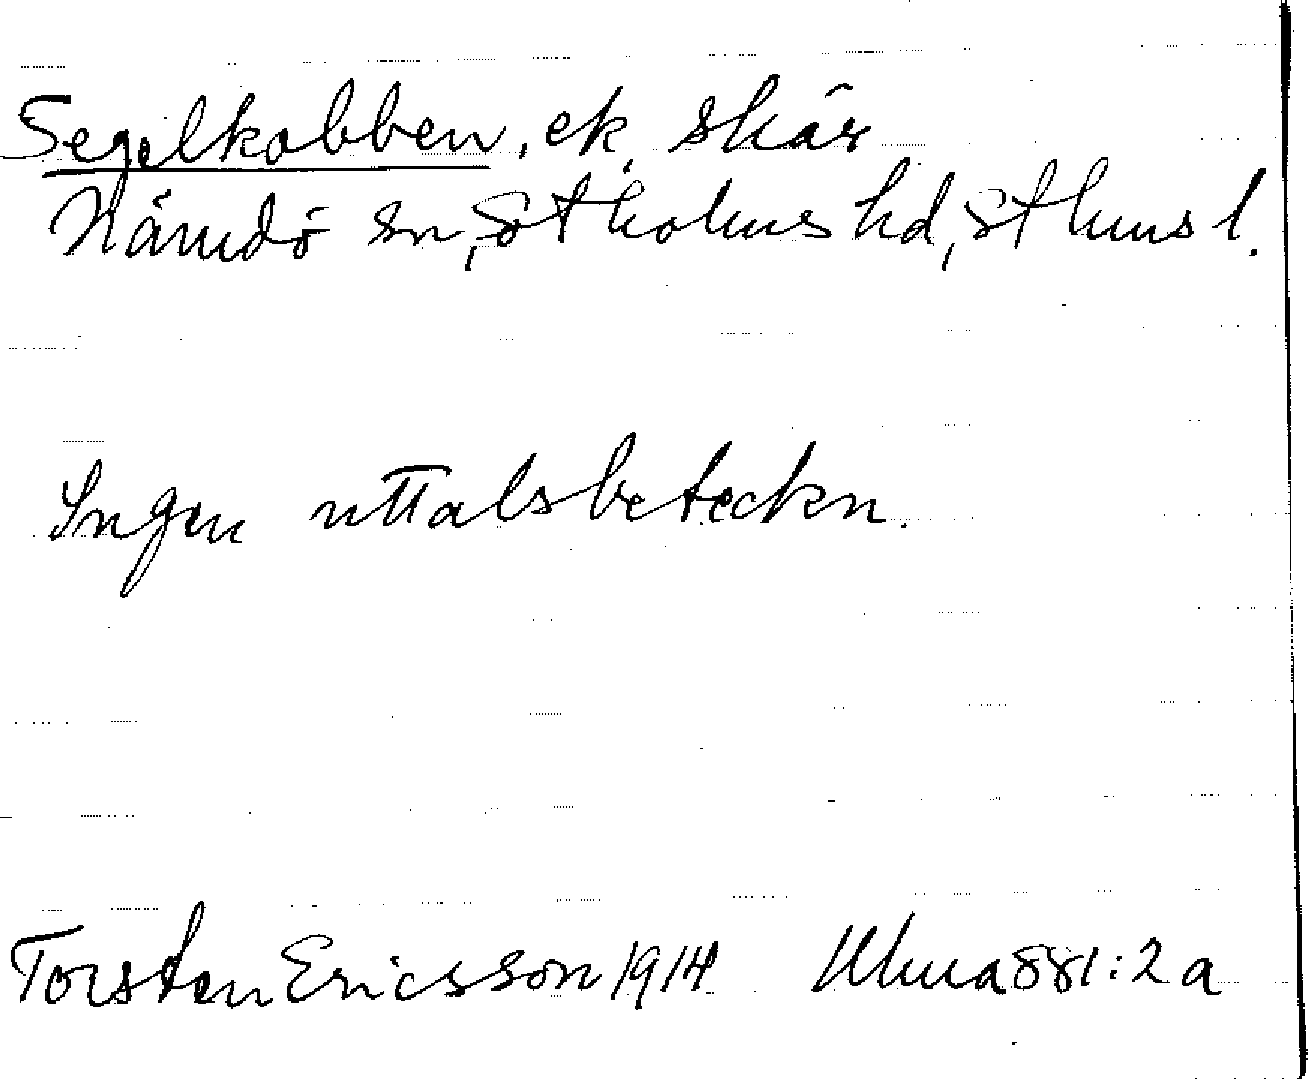 Segelkobben, ek. skär
Nämdö sn, Sotholms hd, Sthms l.
Ingen uttalsbeteckn.
Torsten Ericsson 1914 Ulma 881:2a